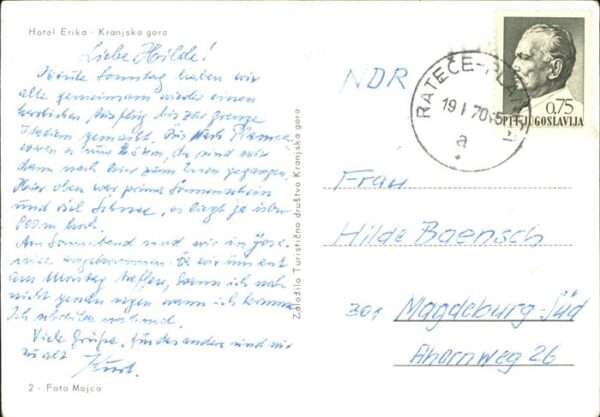 Hotel Erika - Kranjska gora
Liebe Hilde!
Heute Sonntag haben wir
alle gemeinsam wieder einen
herrlichen Ausflug bis zur Grenze
Italien gemacht. Bis nach
waren es nur 2 km, da sind wir
dann noch hier zum gegangen.
Hier oben war prima Sonnenschein
und viel Schnee, es liegt ja über
800 m hoch.
Am Sonnabend sind wir in
angekommen. Ob wir uns erst
am Montag treffen, kann ich noch
nicht genau sagen wann ich komme
Ich schreibe noch mal.
Viele Grüße, für das andere sind wir
zu alt Kurt.
2 - Foto Mojca
Založilo Turistično društvo Kranjska gora
NDR
RATEČE-PLANICA
19 I 70
a
0,75
PTT JUGOSLAVIJA
Frau
Hilde Baensch
301 Magdeburg-Süd
Ahornweg 26